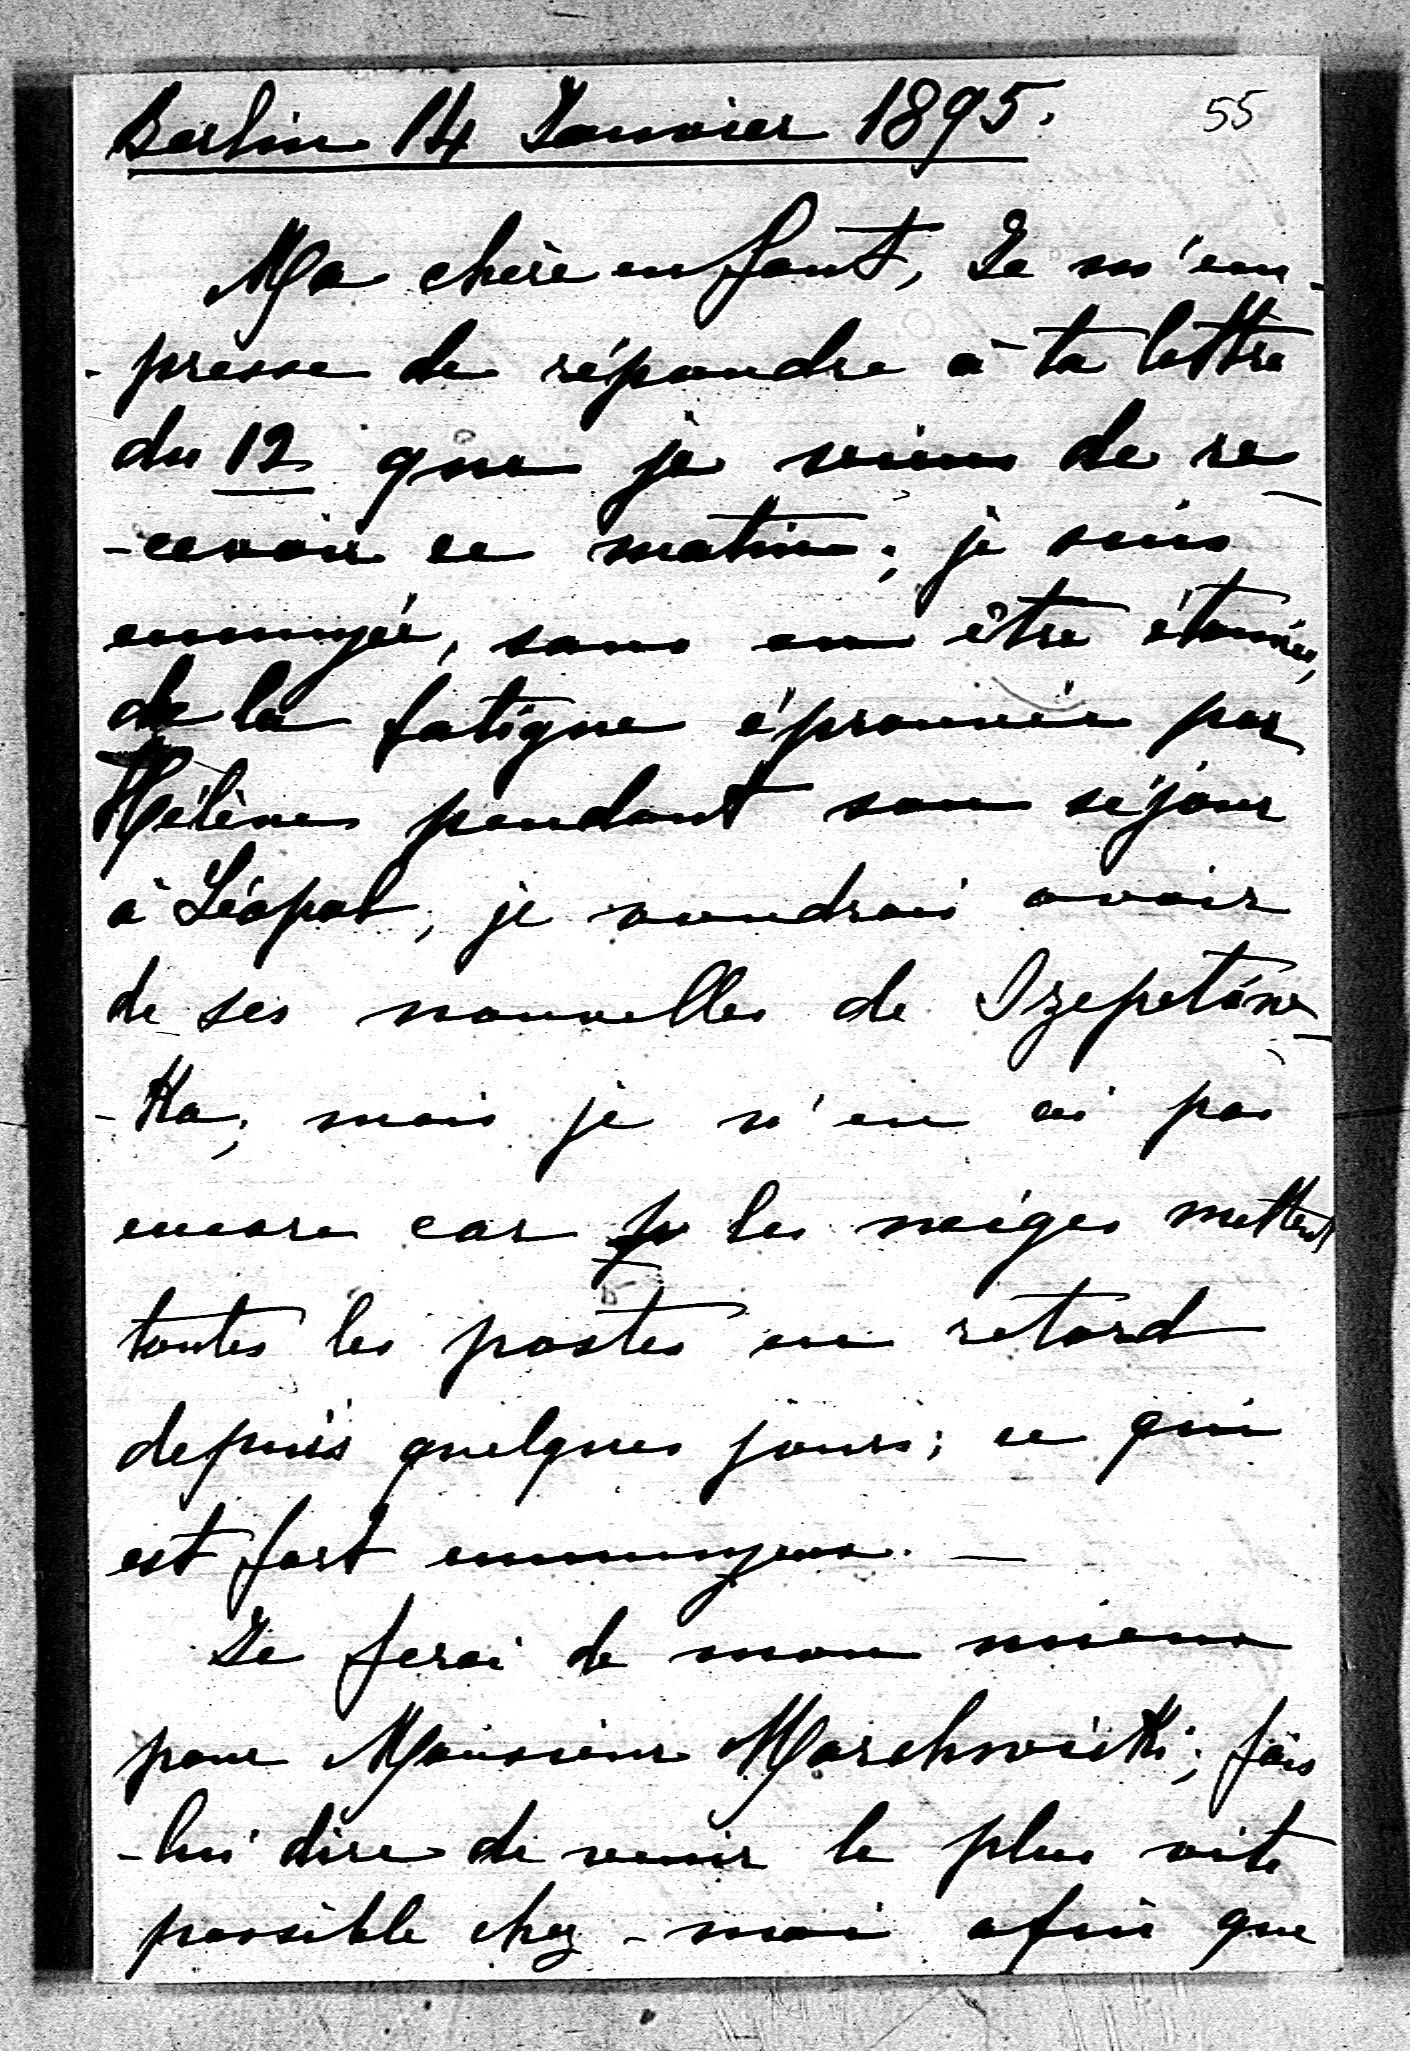 Berlin 14 Janvier 1895.
55
Ma chère enfant, Je m'em-
-presse de répondre à ta lettre
du 12 que je viens de re-
-cevoir ce matin; je suis
ennuyée, sans en être étonnée,
de la fatigue éprouvée par
Hélène pendant son séjour
à Léopol, je voudrais avoir
de ses nouvelles de Szepetów-
-Ka; mais je n'en ai pas
encore car les neiges mettent
toutes les postes en retard
depuis quelques jours; ce qui
est fort ennuyeux. —
Je ferai de mon mieux
pour Monsieur Marchwicki; fais
-lui dire de venir le plus vite
possible chez-moi afin que